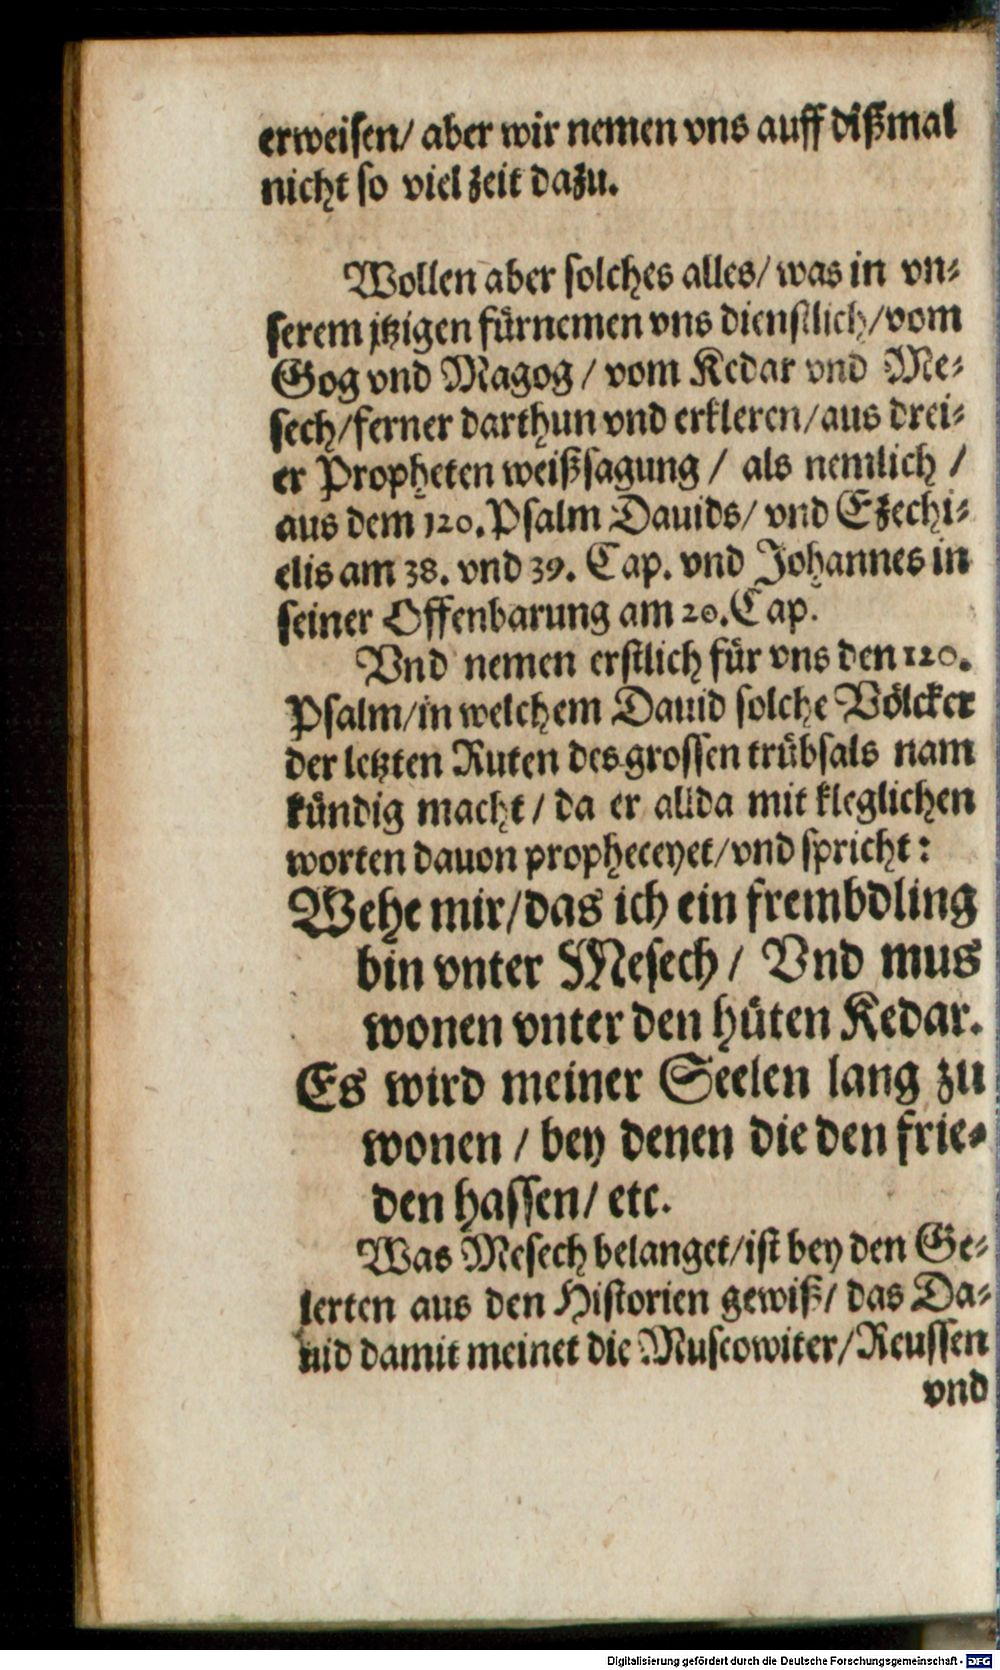 erweisen/ aber wir nemen vns auff dißmal
nicht so viel zeit dazu.
Wollen aber solches alles/ was in vn⸗
serem jtzigen fürnemen vns dienstlich/ vom
Gog vnd Magog / vom Kedar vnd Me⸗
sech/ ferner darthun vnd erkleren/ aus drei⸗
er Propheten weißsagung / als nemlich /
aus dem 120. Psalm Dauids/ vnd Ezechi⸗
elis am 38. vnd 39. Cap. vnd Johannes in
seiner Offenbarung am 20. Cap.
Vnd nemen erstlich für vns den 120.
Psalm/ in welchem Dauid solche Völcker
der letzten Ruten des grossen trübsals nam
kündig macht / da er allda mit kleglichen
worten dauon propheceyet/ vnd spricht:
Wehe mir/ das ich ein frembdling
bin vnter Mesech / Vnd mus
wonen vnter den hüten Kedar.
Es wird meiner Seelen lang zu
wonen / bey denen die den frie⸗
den hassen/ etc.
Was Mesech belanget/ ist bey den Ge⸗
lerten aus den Historien gewiß/ das Da⸗
uid damit meinet die Muscowiter/ Reussen
vnd
Digitalisierung gefördert durch die Deutsche Forschungsgemeinschaft - DFG